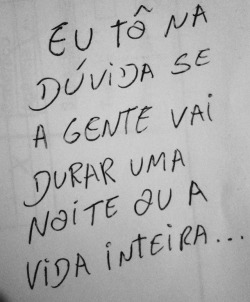 EU TÔ NA
DÚVIDA SE
A GENTE VAI
DURAR UMA
NOITE OU A
VIDA INTEIRA...